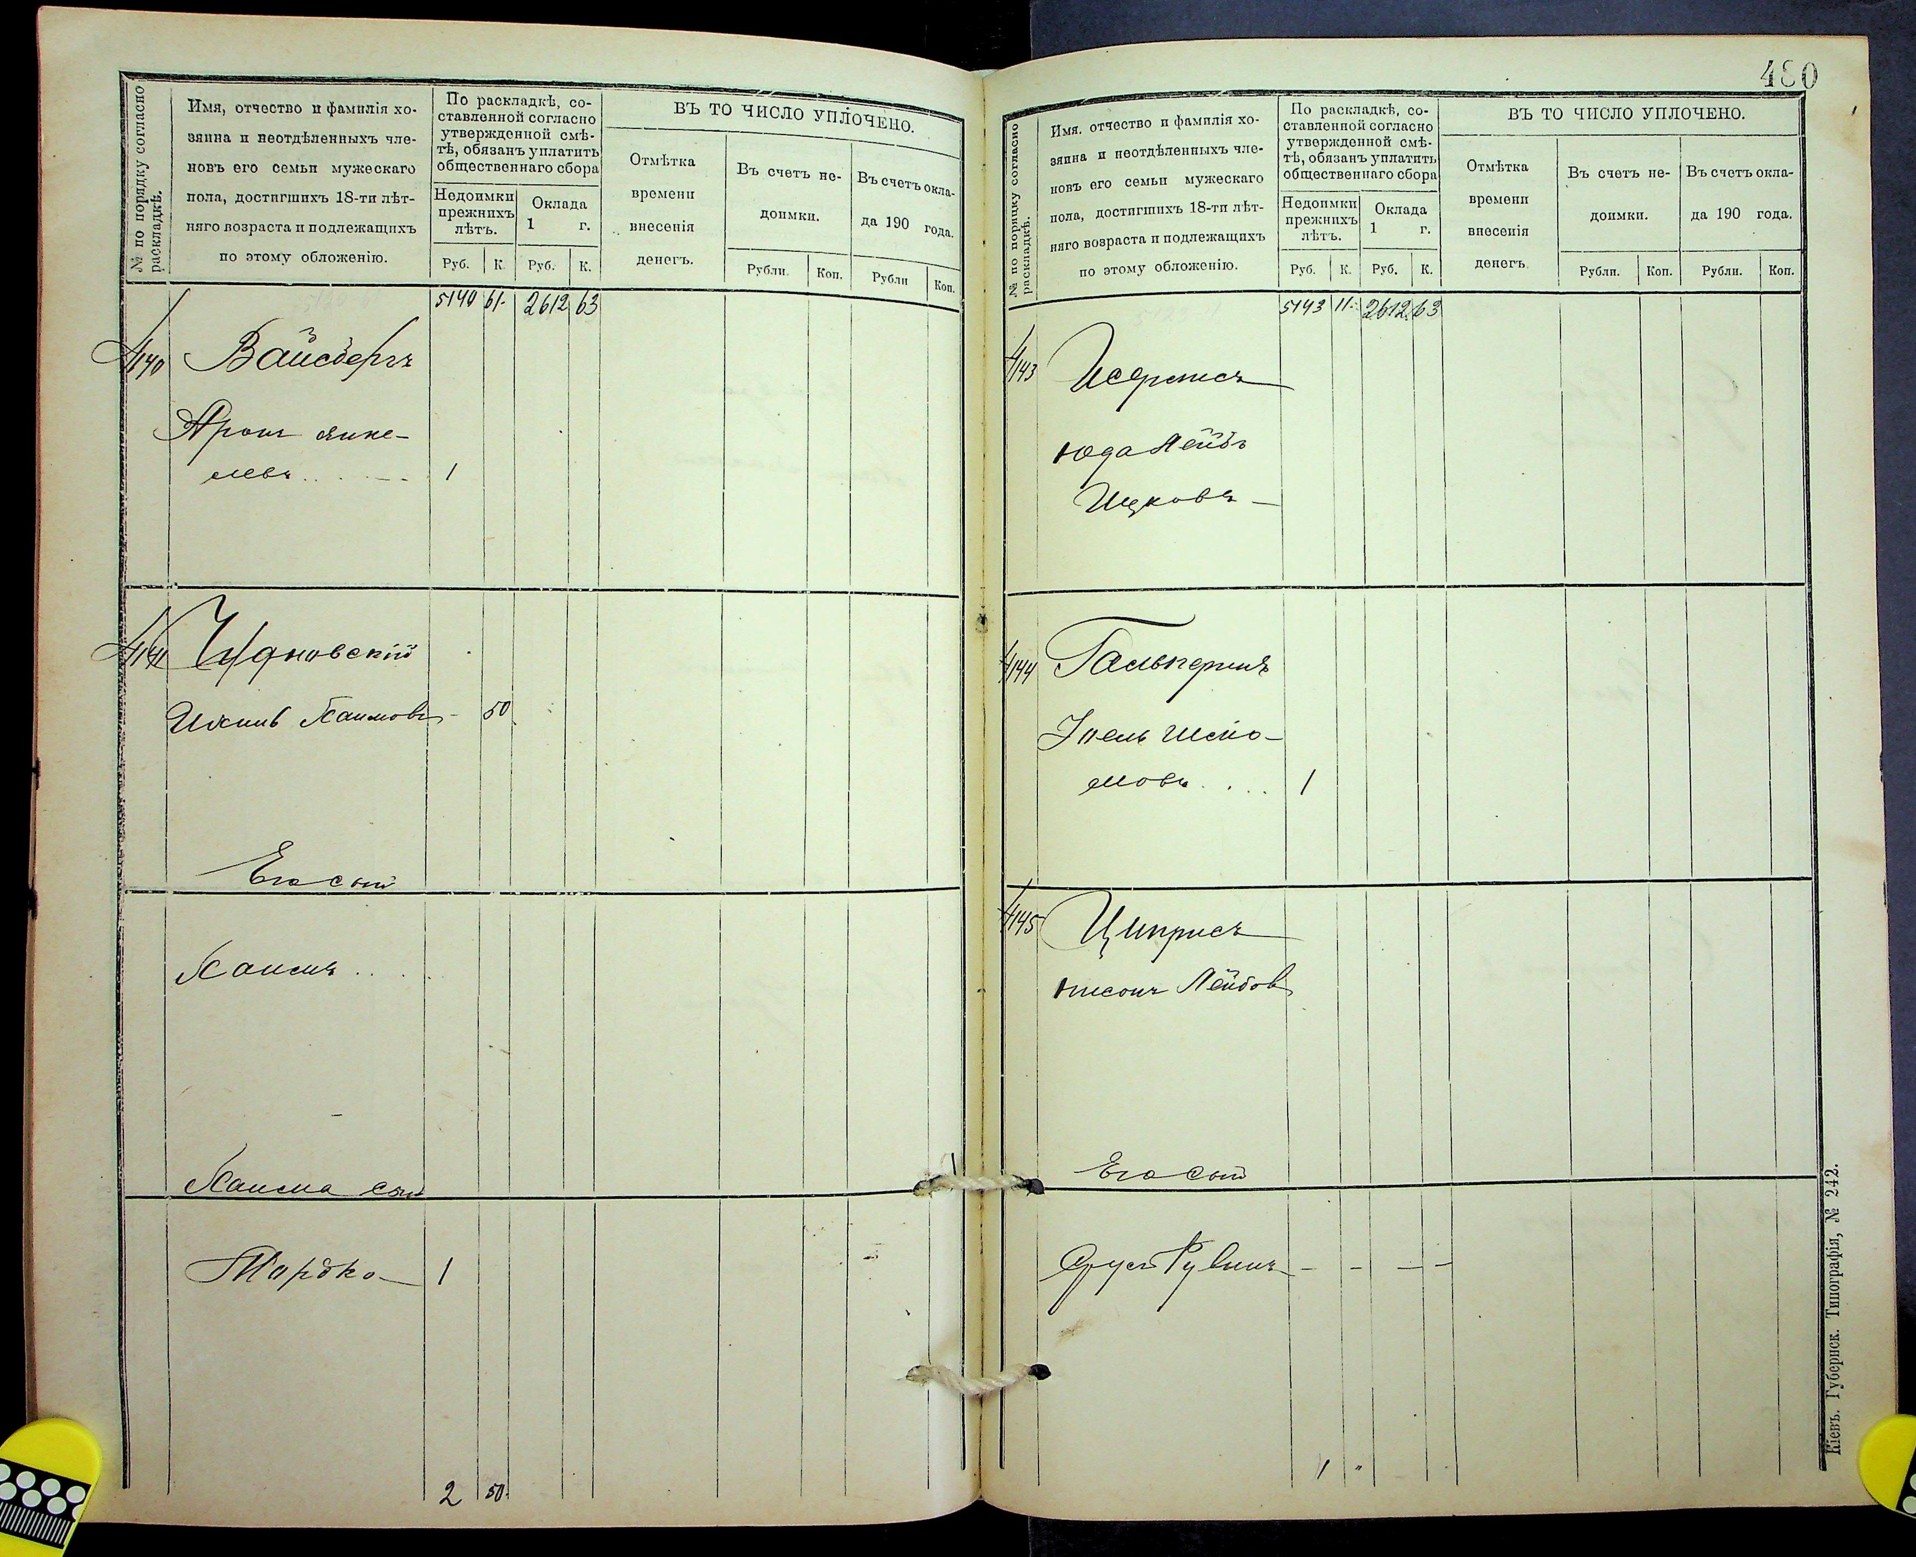 № по порядку согласно раскладкѣ.
Имя, отчество и фамилія хо-
зяина и неотдѣленныхъ чле-
новъ его семьи мужескаго
пола, достигшихъ 18-ти лѣт-
няго возраста и подлежащихъ
по этому обложенію.
По раскладкѣ, со-
ставленной согласно
утвержденной смѣ-
тѣ, обязанъ уплатить
общественнаго сбора
Недоимки
прежнихъ
лѣтъ.
Оклада
1 г.
Руб. К. Руб. К.
ВЪ ТО ЧИСЛО УПЛОЧЕНО.
Отмѣтка
времени
внесенія
денегъ.
Въ счетъ не-
доимки.
Въ счетъ окла-
да 190 года.
Рубли. Коп. Рубли Коп.
5140 61 2612 63
4140 Вайсбергъ
Аронъ Янке-
левъ 1
4141 Чудновскій
Хаимовъ 50
Его сын
Хаимъ
Хаима сын
Мордко 1
2 50
480
№ по порядку согласно раскладкѣ.
Имя, отчество и фамилія хо-
зяина и неотдѣленныхъ чле-
новъ его семьи мужескаго
пола, достигшихъ 18-ти лѣт-
няго возраста и подлежащихъ
по этому обложенію.
По раскладкѣ, со-
ставленной согласно
утвержденной смѣ-
тѣ, обязанъ уплатить
общественнаго сбора
Недоимки
прежнихъ
лѣтъ.
Оклада
1 г.
Руб. К. Руб. К.
ВЪ ТО ЧИСЛО УПЛОЧЕНО.
Отмѣтка
времени
внесенія
денегъ.
Въ счетъ не-
доимки.
Въ счетъ окла-
да 190 года.
Рубли. Коп. Рубли. Коп.
5143 11 2612 63
4143
Юда Лейбъ
Ицковъ —
4144 Гальперинъ
Шлио-
мовъ 1
4145 Циприсъ
Нисонъ Лейбов
Его сын
Сруль Рувинъ - - - -
1 "
Кіевъ. Губернск. Типографія, № 242.